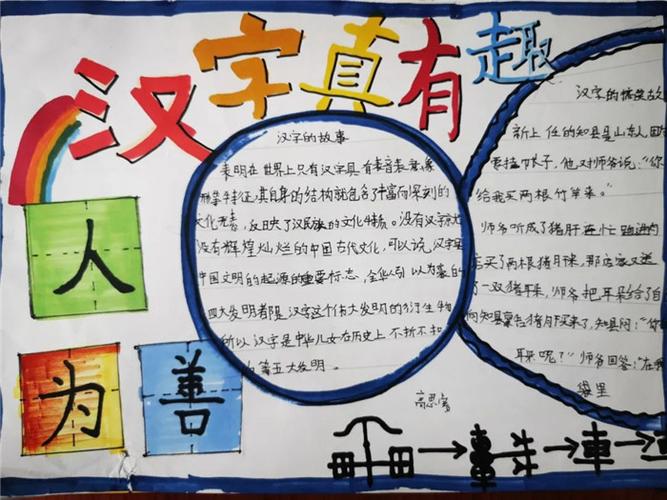 汉字真有趣
汉字的故事
表明在世界上只有汉字具有表音表意象
形等特征,其自身的结构就包含了丰富而深刻的
文化,反映了汉民族的文化特质。没有汉字就
没有辉煌灿烂的中国古代文化,可以说,汉字是
中国文明的起源的重要标志,
四大发明都是汉字这个伟大发明的衍生物
所以汉字是中华儿女在历史上不折不扣
第五大发明。
高思
汉字的搞笑故
新上任的知县是山东人,因
要挂帐子,他对师爷说:“你
给我买两根竹竿来。”
师爷听成了猪肝连忙跑进肉
店买了两根猪肝来,那店家又送
了一双猪耳朵,师爷把耳朵给了自
向知县禀告猪肝买来了,知县问:“你
耳朵呢?”师爷回答:“在我
袋里
人
为善
車